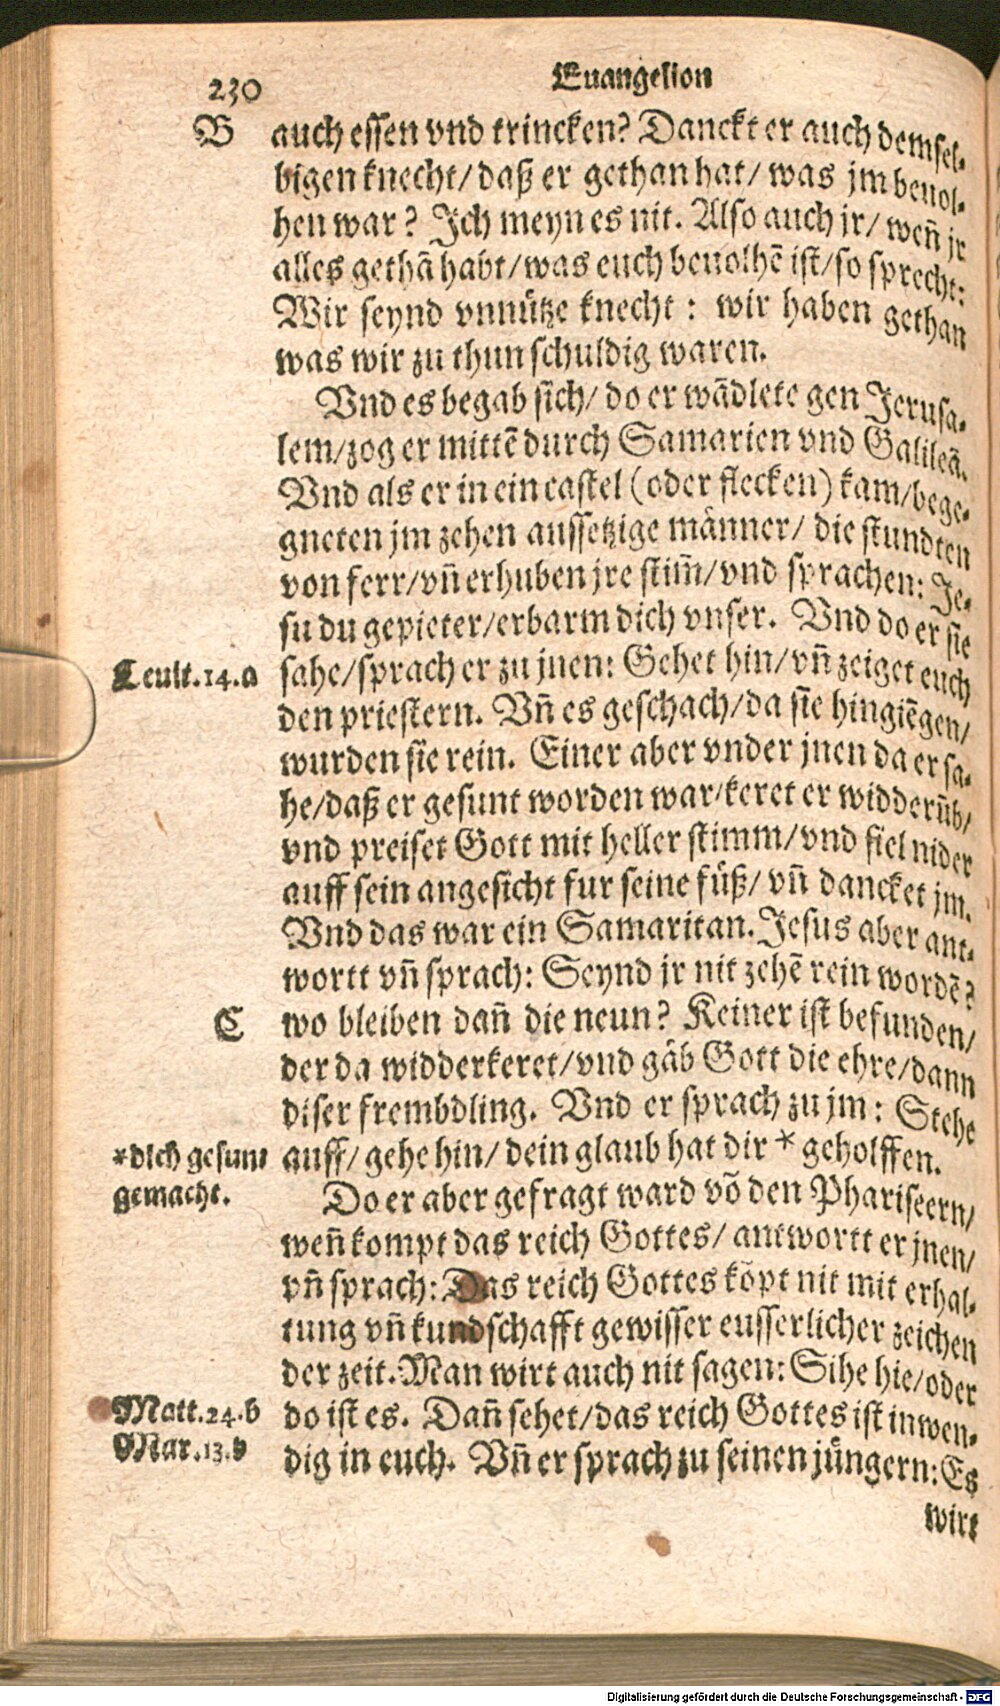 230
Euangelion
B
auch essen vnd trincken? Danckt er auch demsel-
bigen knecht/ daß er gethan hat/ was jm beuol-
hen war? Jch meyn es nit. Also auch jr/ weñ jr
alles gethā habt/ was euch beuolhē ist/ so sprecht:
Wir seynd vnnütze knecht: wir haben gethan
was wir zu thun schuldig waren.
Vnd es begab sich/ do er wādlete gen Jerusa-
lem/ zog er mittē durch Samarien vnd Galileā.
Vnd als er in ein castel (oder flecken) kam/ bege-
gneten jm zehen aussetzige männer/ die stundten
von ferr/ vñ erhuben jre stim̃/ vnd sprachen: Je-
su du gepieter/ erbarm dich vnser. Vnd do er sie
Leuit.14.a
sahe/ sprach er zu jnen: Gehet hin/ vñ zeiget euch
den priestern. Vñ es geschach/ da sie hingiēgen/
wurden sie rein. Einer aber vnder jnen da er sa-
he/ daß er gesunt worden war/ keret er widderūb/
vnd preiset Gott mit heller stimm/ vnd fiel nider
auff sein angesicht fur seine füß/ vñ dancket jm.
Vnd das war ein Samaritan. Jesus aber ant-
wortt vñ sprach: Seynd jr nit zehē rein wordē?
C
wo bleiben dañ die neun? Keiner ist befunden/
der da widderkeret/ vnd gäb Gott die ehre/ dann
diser frembdling. Vnd er sprach zu jm: Stehe
*dich gesunt
gemacht.
auff/ gehe hin/ dein glaub hat dir * geholffen.
Do er aber gefragt ward võ den Phariseern/
weñ kompt das reich Gottes/ antwortt er jnen/
vñ sprach: Das reich Gottes kõpt nit mit erhal-
tung vñ kundschafft gewisser eusserlicher zeichen
der zeit. Man wirt auch nit sagen: Sihe hie/ oder
Matt.24.b
Mar.13.b
do ist es. Dañ sehet/ das reich Gottes ist inwen-
dig in euch. Vñ er sprach zu seinen jüngern: Es
wirt
Digitalisierung gefördert durch die Deutsche Forschungsgemeinschaft - DFG